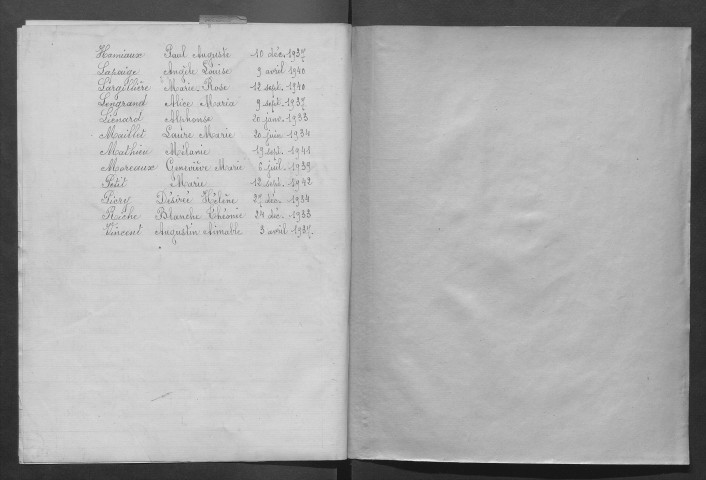 Hamiaux Paul Auguste 10 déc. 1937
Lasaige Angèle Louise 9 avril 1940
Largillière Marie-Rose 12 sept. 1940
Lengrand Alice Maria 9 sept. 1937
Liénard Alphonse 20 janv. 1933
Maillet Laure Marie 20 juin 1934
Mathieu Mélanie 19 sept. 1941
Moreaux Geneviève Marie 6 juil. 1939
Petit Marie 12 sept. 1942
Piezy Désirée Hélène 27 déc. 1934
Riche Blanche 24 déc. 1933
Vincent Augustin Aimable 3 avril 1937.